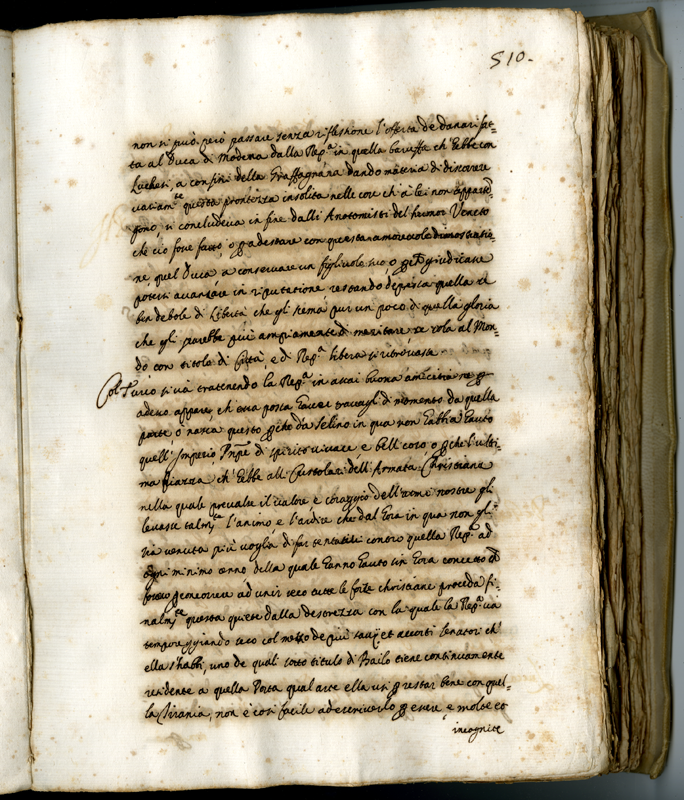 510.
non si può però passare senza riflessione l'offerta de danari fat-
ta al Duca di Modena dalla Rep.a in quella baruffa ch'hebbe con
Luchesi, a confini della Graffagnana dando materia di discorere
variam.te questa prontezza insolita nelle cose ch'a lei non appartẽ-
gono, si concludeva in fine dalli Anotomisti del humor Veneto
che ciò fosse fatto, o ꝑ adestare con questa namorevole dimostratio-
ne, quel Duca a conservare un figliuolo suo, o ꝑche giudicase
potersi avanzare in riputatione restando depressa quella se
ben debole di Libertà che gli scema pur un poco di quella gloria
che gli parebbe più ampiamente di meritare se sola al Mon-
do con titolo di Città, e di Rep.a libera si ritrovasse.
Col Turco si và tratenendo la Rep.a in assai buona amicitia ne ꝑ
adesso appare, ch'essa possa haver travagli di momento da quella
parte o nasca questo ꝑche da Selino in qua non habbia hauto
quell'Imperio Prnpe di spirito vivace, e bellicoso, o ꝑche l'ulti-
ma ch'hebbe alli Curzolari dell'Armata Christiana
nella quale prevalse il valore e coraggio dell'armi nostre gli
levasse talm.te l'animo, e l'ardire che dal hora in qua non gli
sia venuta più voglia di far tentativi contro quella Rep.a ad
ogni minimo cenno della quale hanno hauto in hora concetto di
dover commovere ad unirsi seco tutte le forze christiane proceda fi-
nalm.te questa quiete dalla destrezza con la quale la Rep.a và
temporeggiando seco col mezzo de più saggi et accorti senatori ch'
ella s'habbi, uno de quali sotto titulo di Bailo tiene continuamente
residente a quella Porta qual arte ella usi ꝑ restar bene con quel-
la Tirania, non è così facile a descriverlo ꝑ essere, e molte et
incognite